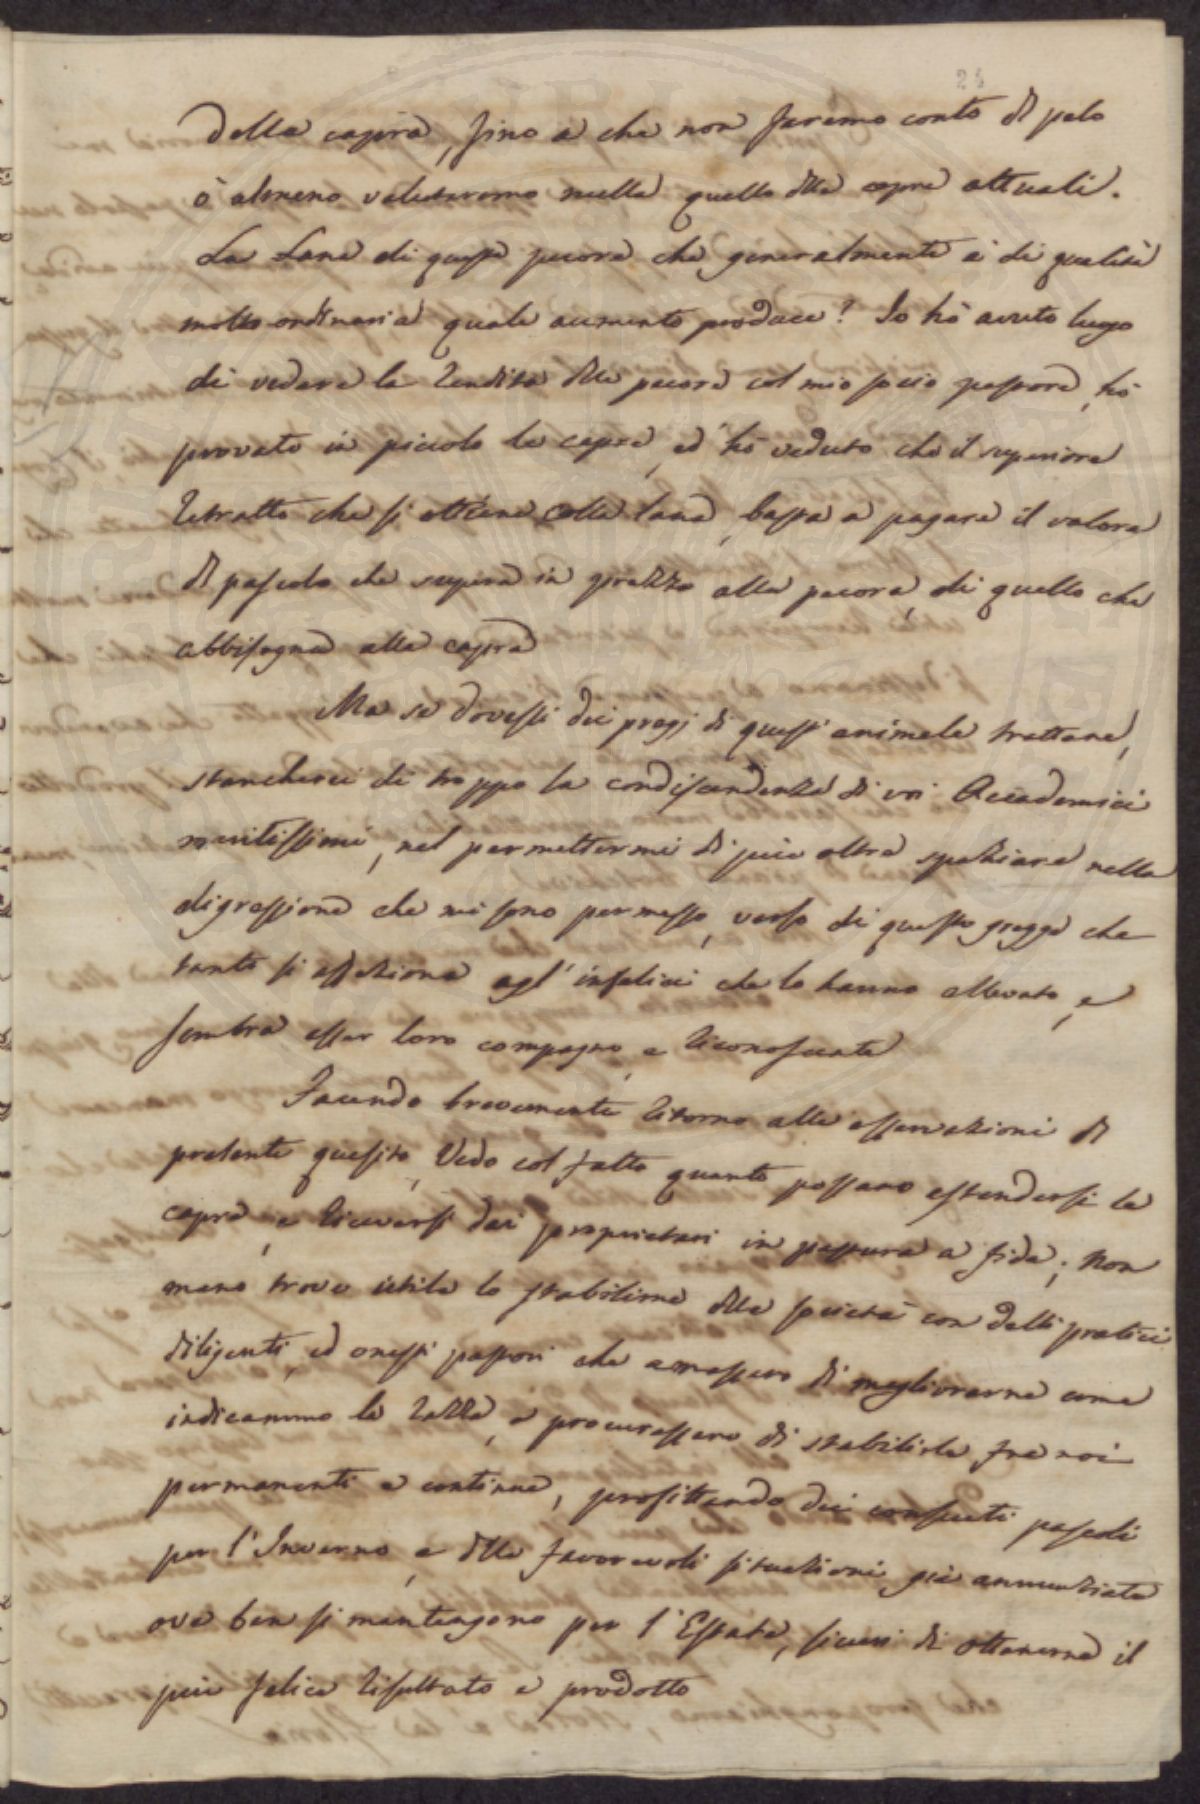 24
della capra, fino a che non faremo conto di pelo
ò almeno valuteremo nulla quello dlle capre attuali.
La Lana di questa pecora che generalmente è di qualità
molto ordinaria quale aumento produce? Io hò avuto luogo
di vedere la rendita dlle pecore col mio socio pastore, hò
provato in piccolo le capre, ed hò veduto che il superiore
retratto che si ottiene colla lana, basta a pagare il valore
di pascolo che supera in prezzo alla pecora, di quello che
abbisogna alla capra
Ma se dovessi dei pregj di questi animale trattare,
stancherei di troppo la condiscendenza di voi Accademici
meritissimi, nel permettermi di più oltre spaziare nella
digressione che mi sono permesso, verso di questo gregge che
tanto si affeziona agl' infelici che lo hanno allevato, e
sembra esser loro compagno, e riconoscente
Facendo brevemente ritorno alle osservazioni di
presente quesito, Vedo col fatto quanto possano estendersi le
capre, e riceversi dai proprietari in pastura a fida; non
meno trovo utile lo stabilirne dlle società con delli pratici
diligenti, ed onesti pastori che amassero di migliorarne come
indicammo le razze, e procurassero di stabilirle fra noi
permanenti e continue, profittando dei consueti pascoli
per l'Inverno, e dlle favorevoli situazioni già annunziate
ove ben si mantengono per l'Estate, sicuri di ottenerne il
più felice risultato e prodotto